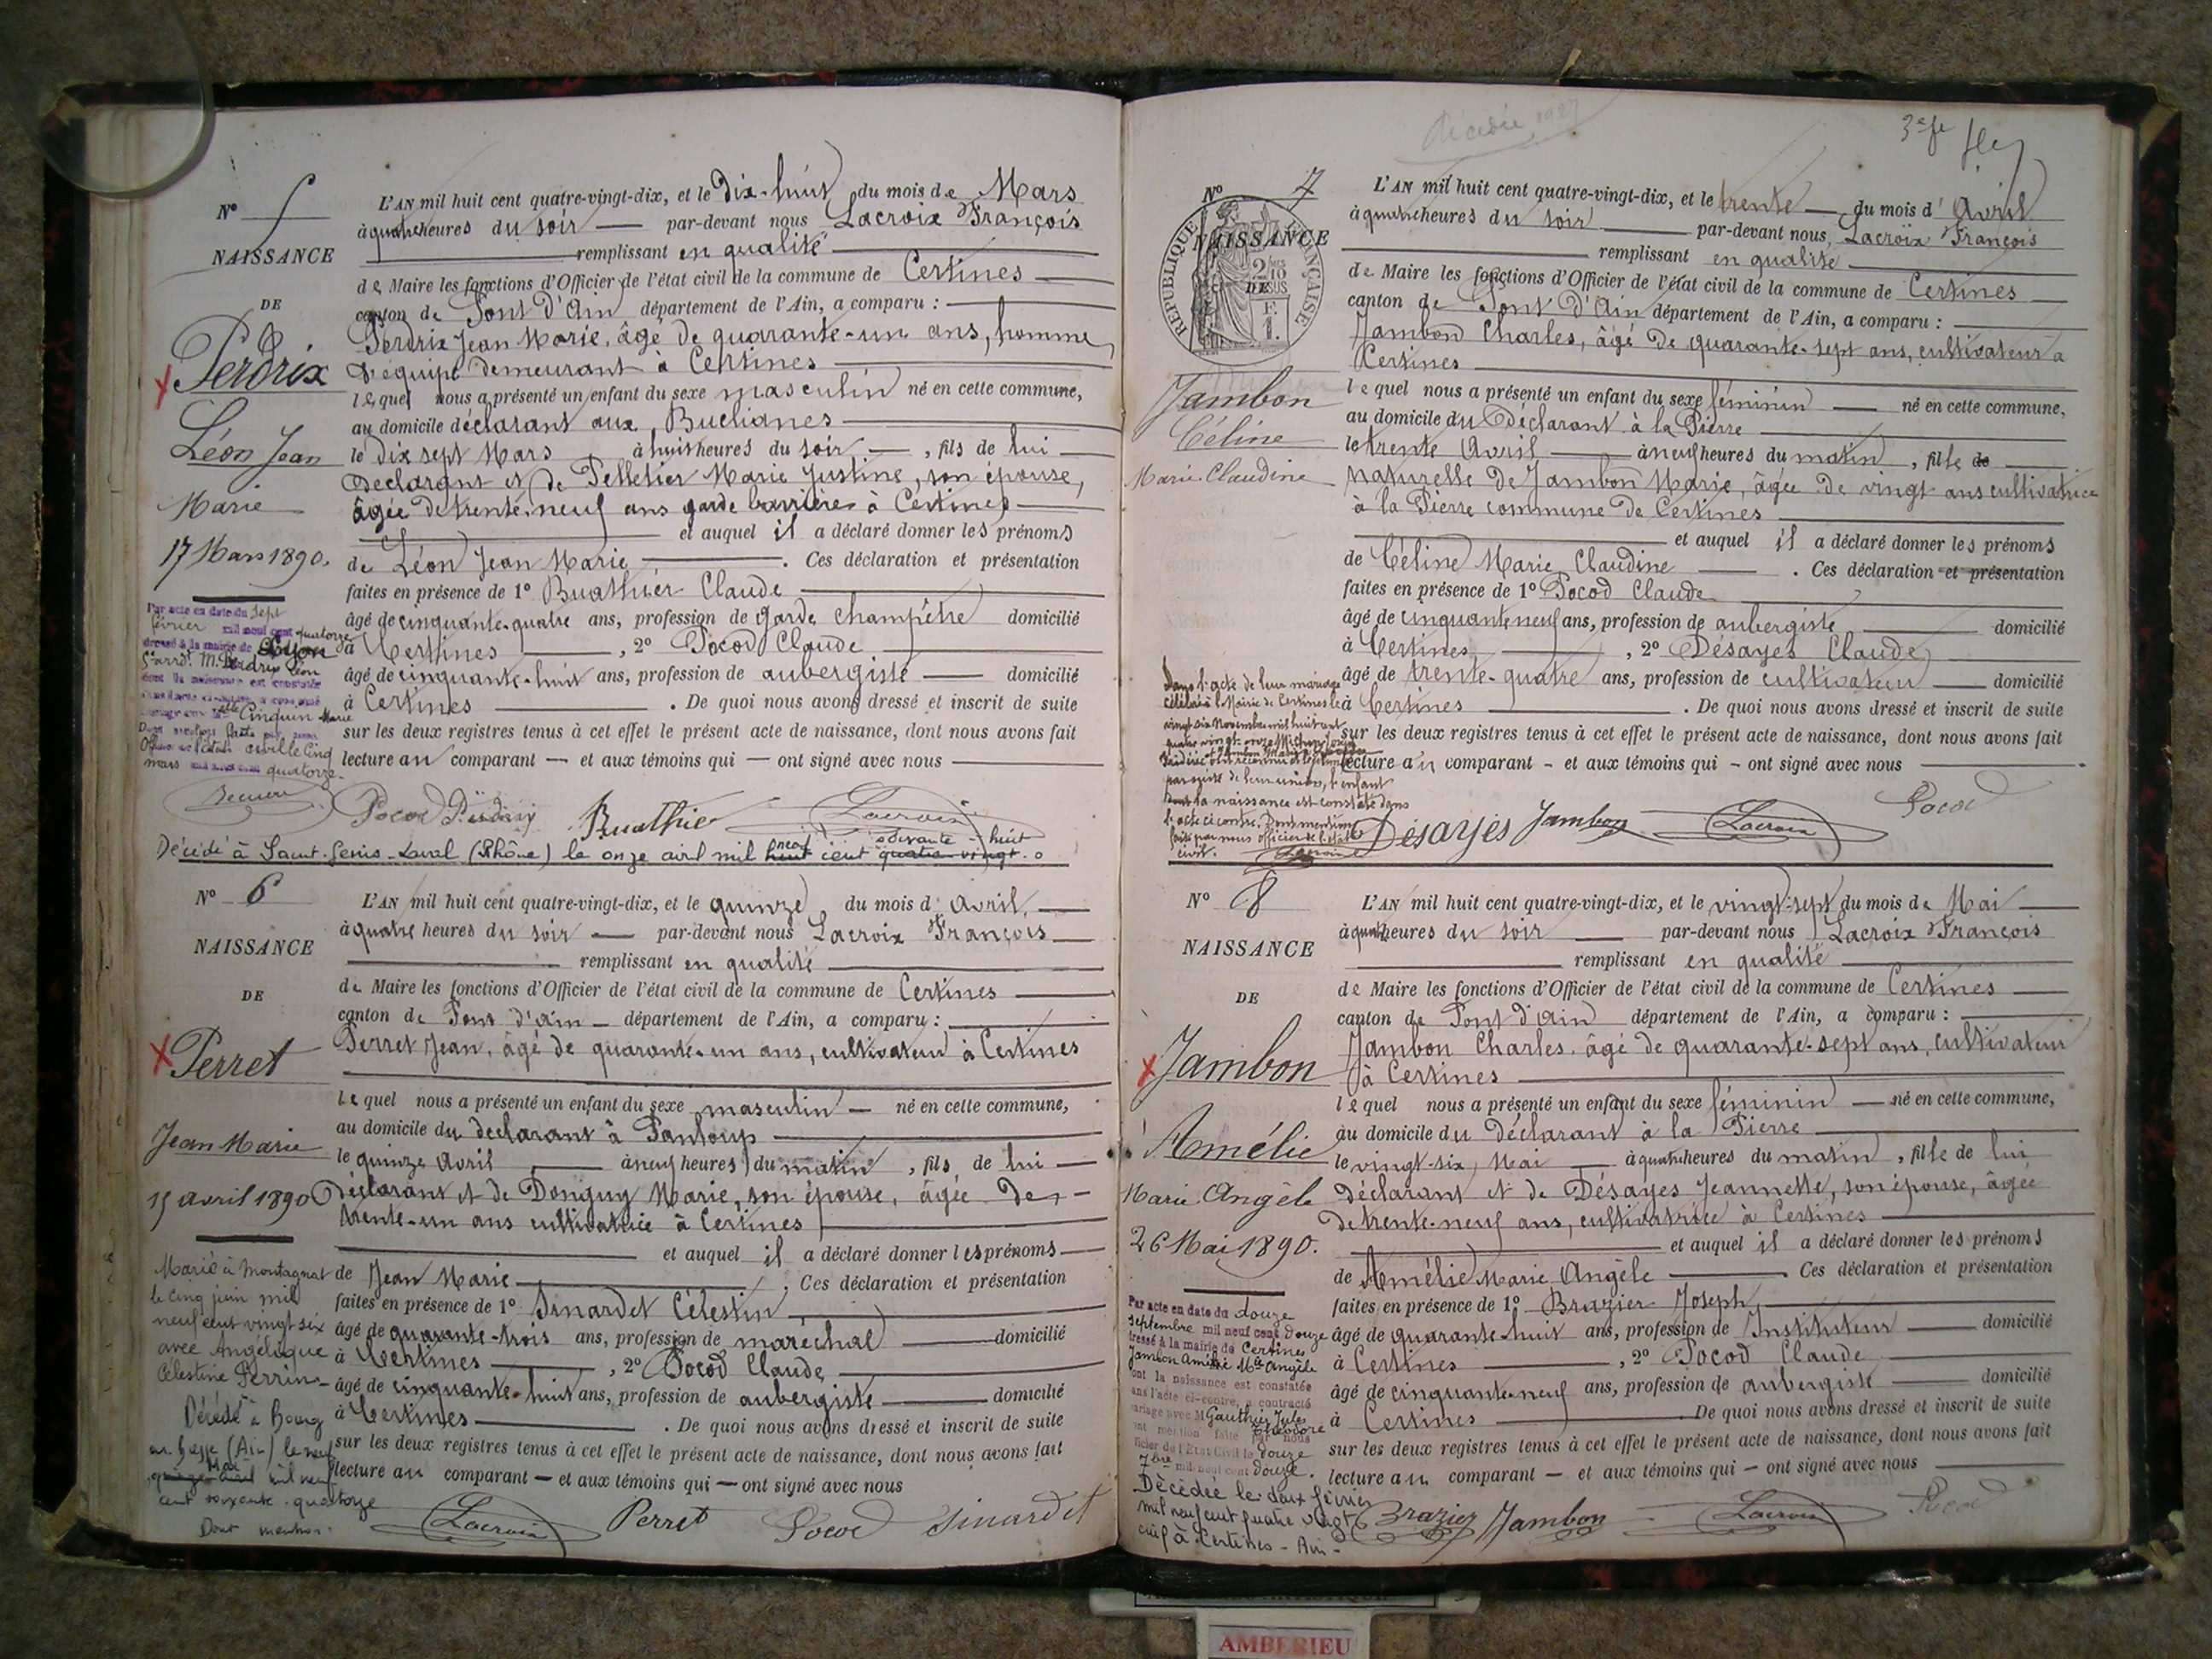 Nº 5
NAISSANCE
DE
Perdrix
Léon Jean
Marie
17 Mars 1890.
L'AN mil huit cent quatre-vingt-dix, et le dix-huit du mois de Mars
à quatre heures du soir — par-devant nous Lacroix François
remplissant en qualité
de Maire les fonctions d'Officier de l'état civil de la commune de Certines
canton de Pont d'Ain département de l'Ain, a comparu :
Perdrix Jean Marie, âgé de quarante-un ans, homme
d'équipe demeurant à Certines
lequel nous a présenté un enfant du sexe masculin né en cette commune,
au domicile déclarant aux Buclianes
le dix sept Mars à huit heures du soir, — , fils de lui
déclarant et de Pelletier Marie Justine, son épouse,
âgée de trente-neuf ans garde barrière à Certines
et auquel il a déclaré donner les prénoms
de Léon Jean Marie . Ces déclaration et présentation
faites en présence de 1º Buathier Claude
âgé de cinquante-quatre ans, profession de garde champêtre domicilié
à Certines , 2º Pocod Claude
âgé de cinquante-huit ans, profession de aubergiste domicilié
à Certines . De quoi nous avons dressé et inscrit de suite
sur les deux registres tenus à cet effet le présent acte de naissance, dont nous avons fait
lecture au comparant — et aux témoins qui — ont signé avec nous
Par acte en date du sept
février mil neuf cent quatorze
dressé à la mairie de Lyon
5e arrdt M. Perdrix Léon
dont la naissance est constatée
Cinquin Marie
Officier de l'état civil le cinq
mars mil neuf cent quatorze
Pocod Perdrix Buathier Lacroix
Décédé à Saint-Genis-Laval (Rhône) le onze avril mil neuf cent soixante-huit
Nº 6
NAISSANCE
DE
Perret
Jean Marie
15 avril 1890
L'AN mil huit cent quatre-vingt-dix, et le quinze du mois d'avril,
à quatre heures du soir — par-devant nous Lacroix François
remplissant en qualité
de Maire les fonctions d'Officier de l'état civil de la commune de Certines
canton de Pont d'Ain — département de l'Ain, a comparu :
Perret Jean, âgé de quarante-un ans, cultivateur à Certines
lequel nous a présenté un enfant du sexe masculin — né en cette commune,
au domicile du déclarant à Fanloup
le quinze avril à neuf heures du matin , fils de lui
déclarant et de Donguy Marie, son épouse, âgée de
trente-un ans cultivatrice à Certines
et auquel il a déclaré donner les prénoms
de Jean Marie . Ces déclaration et présentation
faites en présence de 1º Sinardet Célestin
âgé de quarante-trois ans, profession de maréchal domicilié
à Certines , 2º Pocod Claude
âgé de cinquante-huit ans, profession de aubergiste domicilié
à Certines . De quoi nous avons dressé et inscrit de suite
sur les deux registres tenus à cet effet le présent acte de naissance, dont nous avons fait
lecture au comparant — et aux témoins qui — ont signé avec nous
Marié à Montagnat
le cinq juin mil
neuf cent vingt six
avec Angélique
Célestine Perrin
Décédé à Bourg
en Bresse (Ain) le neuf
Mai mil neuf
cent soixante-quatorze
Dont mention.
Lacroix Perret Pocod Sinardet
décédée 1987
3e fe
Nº 7
NAISSANCE
DE
RÉPUBLIQUE FRANÇAISE
2/10 EN SUS
F. 1.
Jambon
Céline
Marie Claudine
L'AN mil huit cent quatre-vingt-dix, et le trente — du mois d'Avril
à quatre heures du soir par-devant nous, Lacroix François
remplissant en qualité
de Maire les fonctions d'Officier de l'état civil de la commune de Certines
canton de Pont d'Ain département de l'Ain, a comparu :
Jambon Charles, âgé de quarante-sept ans, cultivateur à
Certines
lequel nous a présenté un enfant du sexe féminin — né en cette commune,
au domicile du déclarant à la Pierre
le trente Avril à neuf heures du matin , fille de
naturelle de Jambon Marie, âgée de vingt ans cultivatrice
à la Pierre commune de Certines
et auquel il a déclaré donner les prénoms
de Céline Marie Claudine . Ces déclaration et présentation
faites en présence de 1º Pocod Claude
âgé de cinquante neuf ans, profession de aubergiste domicilié
à Certines , 2º Désayes Claude
âgé de trente-quatre ans, profession de cultivateur domicilié
à Certines . De quoi nous avons dressé et inscrit de suite
sur les deux registres tenus à cet effet le présent acte de naissance, dont nous avons fait
lecture au comparant - et aux témoins qui - ont signé avec nous
Dans l'acte de leur mariage
célébré à la Mairie de Certines le
vingt six Novembre mil huit cent
quatre vingt onze
par suite de leur union, l'enfant
dont la naissance est constatée dans
l'acte ci-contre. Dont mention
faite par nous officier de l'état
civil.
Désayes Jambon Lacroix Pocod
Nº 8
NAISSANCE
DE
Jambon
Amélie
Marie Angèle
26 Mai 1890.
L'AN mil huit cent quatre-vingt-dix, et le vingt-sept du mois de Mai
à quatre heures du soir par-devant nous Lacroix François
remplissant en qualité
de Maire les fonctions d'Officier de l'état civil de la commune de Certines
canton de Pont d'Ain département de l'Ain, a comparu :
Jambon Charles, âgé de quarante-sept ans, cultivateur
à Certines
lequel nous a présenté un enfant du sexe féminin — né en cette commune,
au domicile du déclarant à la Pierre
le vingt-six Mai à quatre heures du matin , fille de lui
déclarant et de Désayes Jeannette, son épouse, âgée
de trente-neuf ans, cultivatrice à Certines
et auquel il a déclaré donner les prénoms
de Amélie Marie Angèle . Ces déclaration et présentation
faites en présence de 1º Brazier Joseph
âgé de quarante-huit ans, profession de Instituteur domicilié
à Certines , 2º Pocod Claude
âgé de cinquante-neuf ans, profession de aubergiste domicilié
à Certines . De quoi nous avons dressé et inscrit de suite
sur les deux registres tenus à cet effet le présent acte de naissance, dont nous avons fait
lecture au comparant — et aux témoins qui — ont signé avec nous
Par acte en date du douze
septembre mil neuf cent douze
dressé à la mairie de Certines
Jambon Amélie Mie Angèle
dont la naissance est constatée
dans l'acte ci-contre, a contracté
mariage avec M Gauthier Jules
Théodore
dont mention faite par nous
officier de l'Etat Civil le douze
7bre mil neuf cent douze.
Décédée le deux février
mil neuf cent quatre vingt
cinq à Certines - Ain -
Brazier Jambon Lacroix Pocod
AMBERIEU